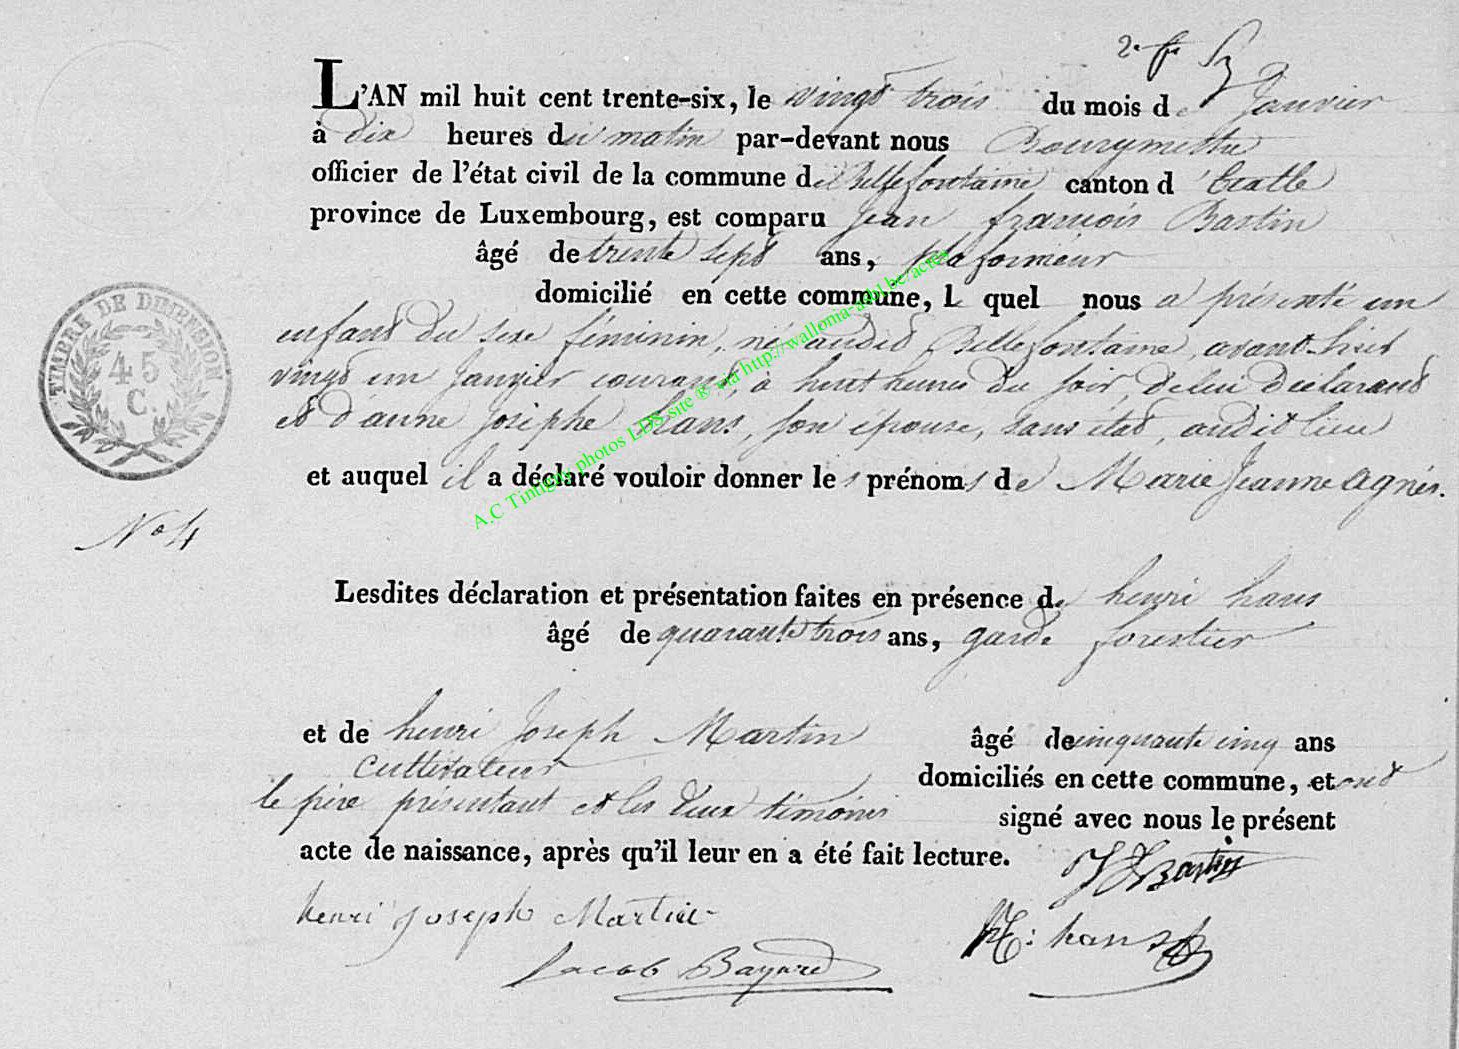 L'AN mil huit cent trente-six, le vingt trois du mois de Janvier
à dix heures du matin par-devant nous Bourgmestre
officier de l'état civil de la commune de Bellefontaine canton d'Etalle
province de Luxembourg, est comparu Jean françois Bastin
âgé de trente sept ans, plafonneur
domicilié en cette commune, Le quel nous a présenté un
enfant du sexe féminin, né audit Bellefontaine, avant hier
vingt un Janvier courant, à huit heures du soir de lui déclarant
et d'anne Josephe hans, son épouse, sans etat, audit lieu
et auquel il a déclaré vouloir donner les prénoms de Marie Jeanne agnès.
No 4
Lesdites déclaration et présentation faites en présence de henri hans
âgé de quarante trois ans, garde forestier
et de henri Joseph Martin âgé de cinquante cinq ans
cultivateur domiciliés en cette commune, et ont
le père présentant et les deux témoins signé avec nous le présent
acte de naissance, après qu'il leur en a été fait lecture.
JF Bastin
henri joseph Martin
H: hans
Jacob Bayard
TIMBRE DE DIMENSION
45
C.
A.C Tintigny photos LDS site ® via http://wallonia-asbl.be/actes